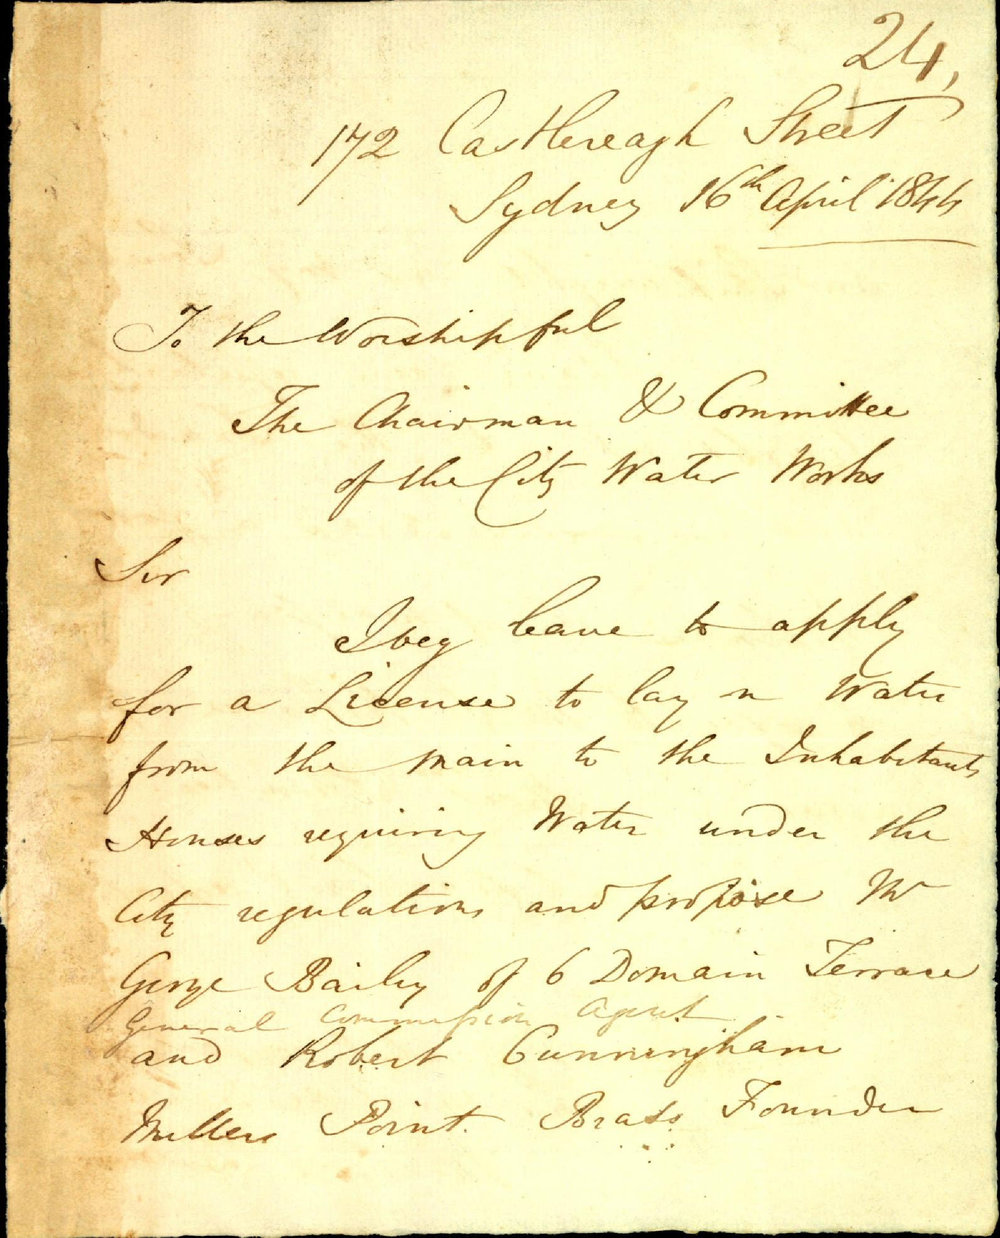 24,
172 Castlereagh Street
Sydney 16th April 1844
To the Worshipful
The Chairman & Committee
of the City Water Works
Sir
I beg leave to apply
for a License to lay n Water
from the main to the Inhabitants
Houses requiring Water under the
City regulations and propose Mr
George Bailey of 6 Domain Terrace
General Commission Agent
and Robert Cunningham
Millers Point Brass Founder